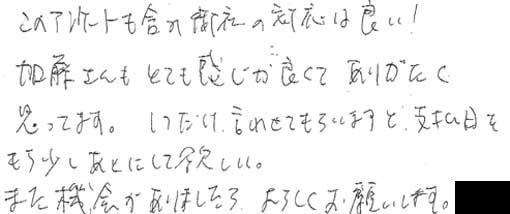 このアンケートも含め御社の対応は良い！
加藤さんもとても感じが良くてありがたく
思ってます。1つだけ言わせてもらいますと、支払日を
もう少しあとにして欲しい。
また機会がありましたらよろしくお願いします。